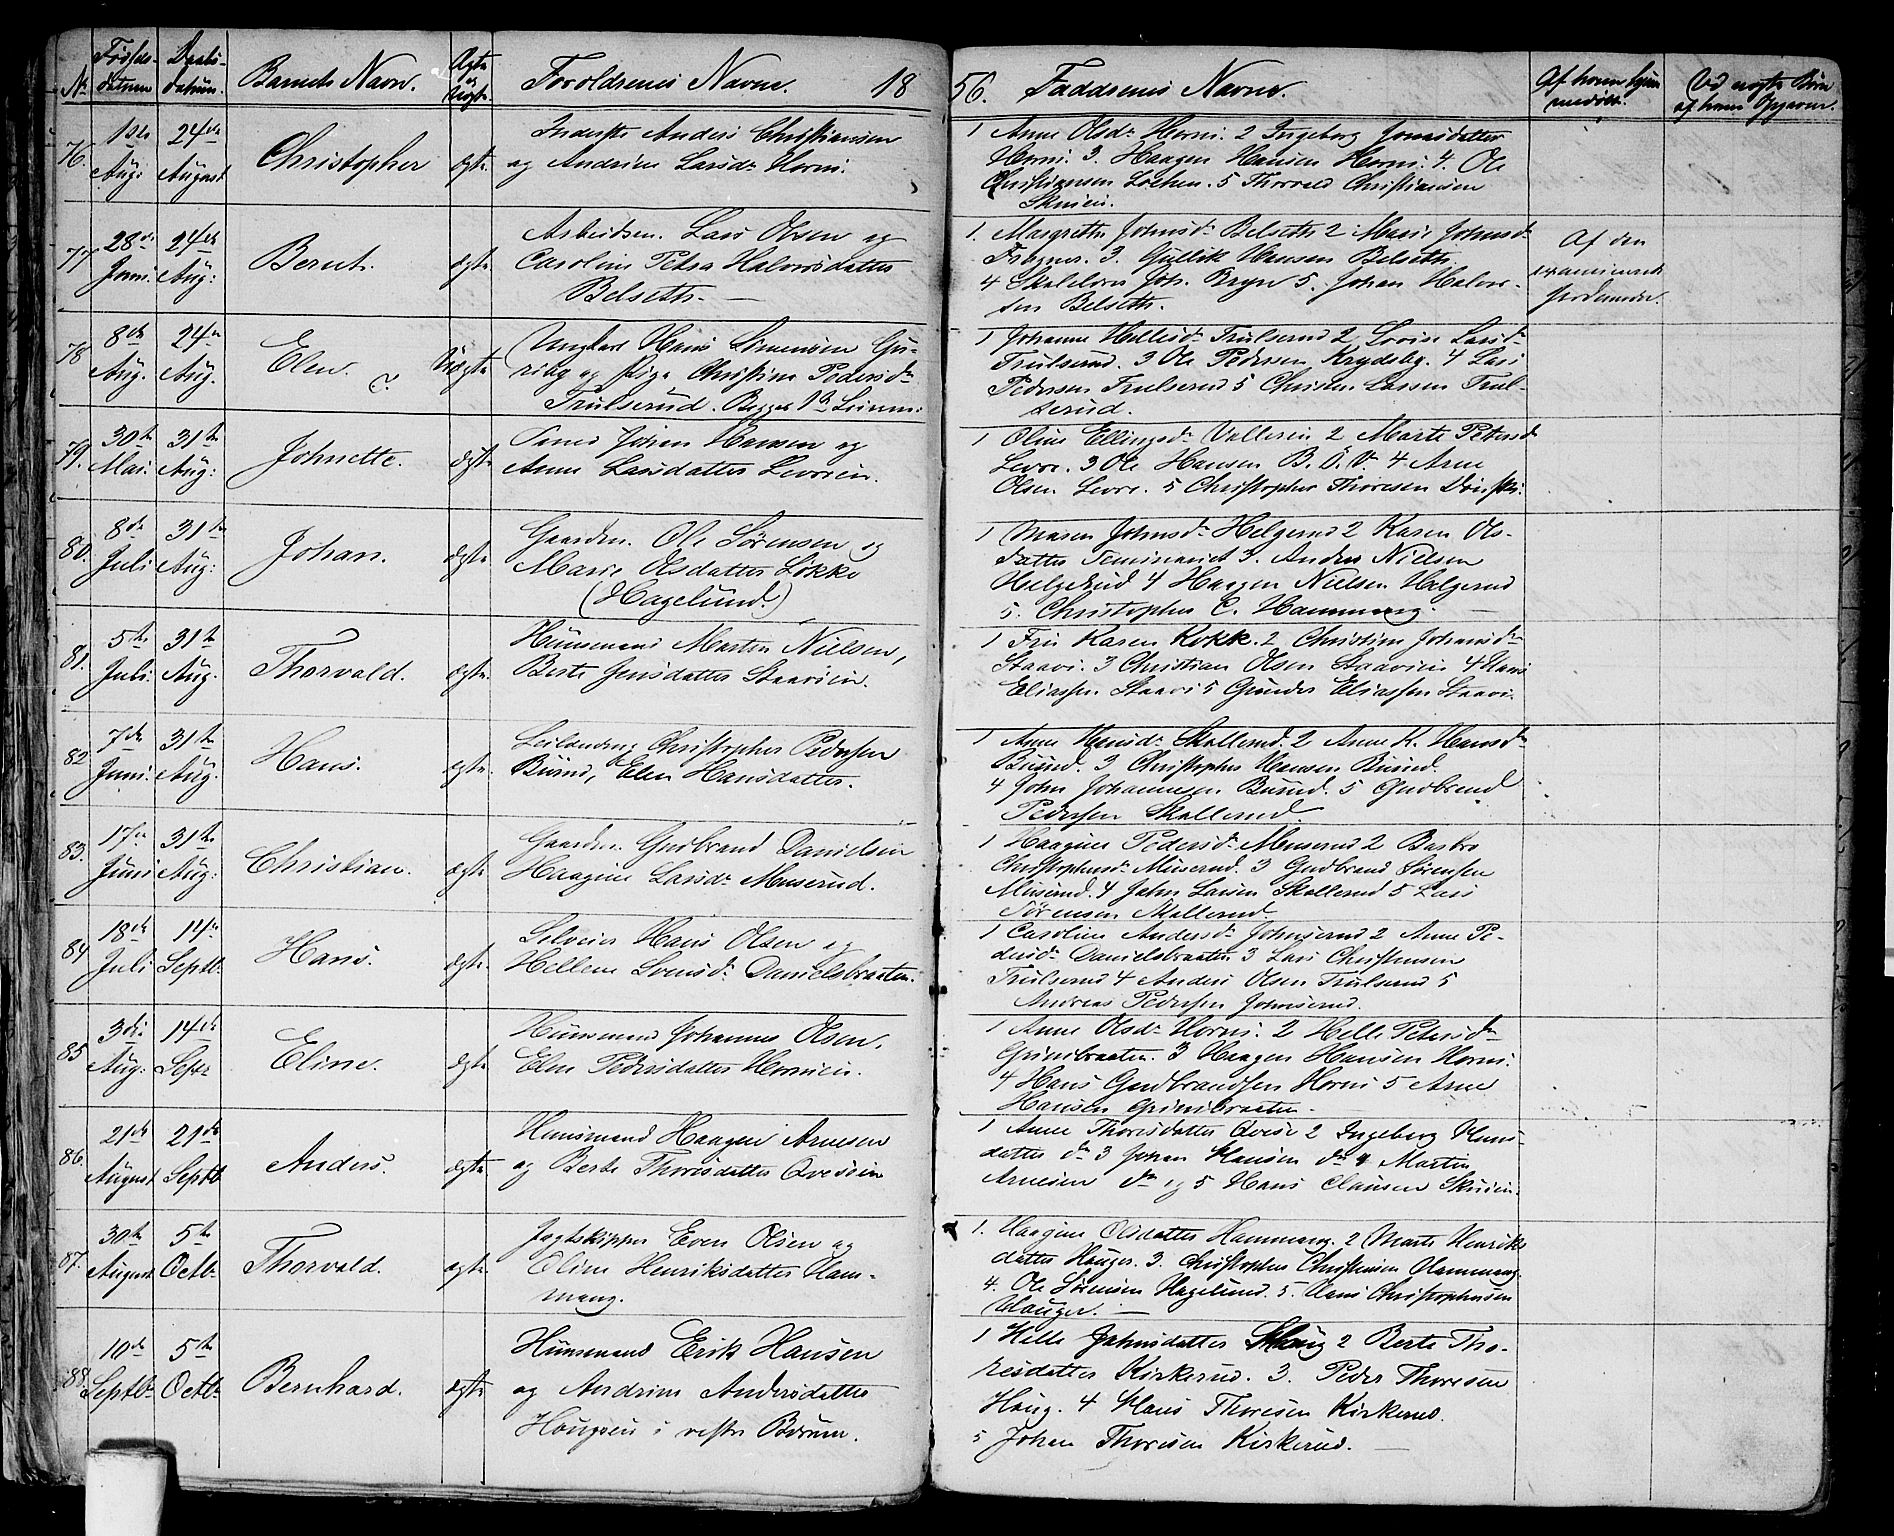 No Fødsels-datum Daabs-datum. Barnets Navn. Ægte og Uægte. Forældrenes Navne. 18
56. Faddrenes Navne. Af hvem hjemmedøbt. Ved uægte Børn af hvem Opgaven.
76. 1ste Aug: 24de August Christopher ægte.
Inderste Anders Christiansen
og Andrine Larsdr Horni.
1 Anne Olsdr Horni. 2 Ingeborg Jonasdatter
Horni. 3. Haagen Hansen Horni. 4. Ole
Christiansen Løken. 5 Thorvald Christiansen
Skuien.
77 28de Juni. 24de Aug: Bernt. ægte
Arbeidsm. Lars Olsen og
Caroline Petra Halvorsdatter
Belseth.
1. Margrethe Johnsdr Belseth 2 Marie Johnsdr
Frogner. 3. Gullik Hansen Belseth.
4 Skolelærer Joh. Bryn 5. Johan Halvor-
sen Belseth.
Af den
examinerede
Jordemoder.
78 8de Aug. 24de Aug. Elen. Uægte
Ungkarl Hans Simensen Gu-
riby og Pige Christine Pedersdr
Trulserud. Begges 1ste Leierm:
1 Johanne Hellesdr Trulserud 2 Lovise Larsdr
Trulserud. 3 Ole Pedersen Krydsby. 4 Lars
Pedersen Trulserud 5 Christen Larsen Trul-
serud.
79. 30te Mai. 31te Aug: Johnette. ægte
Johan Hansen og
Anne Larsdatter Levreien.
1 Oline Ellingsdr Vallerein 2 Marte Petersdr
Levre. 3 Ole Hansen B. Ö. V. 4 Arne
Olsen Levre. 5 Christopher Thoresen Dønski.
80. 8de Juli 31te Aug: Johan. ægte
Gaardm. Ole Sørensen og
Marie Olsdatter Løkke
(Hagelund.)
1 Maren Johnsdr Helgerud 2 Karen Ols-
datter Seminariet 3. Anders Nielsen
Helgerud 4 Haagen Nielsen Helgerud
5. Christopher C. Hammang.
81. 5te Juli. 31te Aug. Thorvald. ægte.
Huusmand Martin Nielsen,
Berte Jensdatter Staavien.
1 Fru Karen Kokk. 2 Christine Johansdr
Staavi. 3 Christian Olsen Staavien 4 Hans
Eliassen Staavi 5 Gunder Eliassen Staavi.
82 7de Juni. 31te Aug. Hans. ægte.
Leilending Christopher Pedersen
Burud, Elen Hansdatter.
1 Anne Hansdr Skollerud. 2 Anne K. Hansdr
Burud. 3 Christopher Hansen Burud.
4 John Johannesen Burud. 5 Gudbrand
Pedersen Skollerud.
83. 17de Juni 31te Aug: Christian. ægte
Gaardm. Gudbrand Danielsen
Haagine Larsdr Muserud.
1 Haagine Pedersdr Muserud 2 Barbro
Christophersdr Muserud. 3 Gudbrand Sørensen
Muserud. 4 John Larsen Skollerud 5 Lars
Sørensen Skollerud.
84 18de Juli 14de Septb. Hans. ægte
Selveier Hans Olsen og
Hellene Svensdr Danielsbraaten.
1 Caroline Andersdr Johnsrud 2 Anne Pe-
dersdr Danielsbraaten 3 Lars Christensen
Trulserud 4 Anders Olsen Trulserud 5
Andreas Pedersen Johnsrud.
85 3die Aug: 14de Septr Eline. ægte
Huusmand Johannes Olsen.
Elen Pedersdatter Hornien.
1 Anne Olsdr Horni. 2 Helle Petersdr
Grinibraaten. 3 Haagen Hansen Horni.
4 Hans Gudbrandsen Horni 5 Arne
Hansen Grinibraaten.
86. 21de August 21de Septb Anders. ægte
Huusmand Haagen Arnesen
og Berte Thoresdatter Qvesein
1 Anne Thoresdatter Qvese 2 Ingeborg Hans-
datter do 3 Johan Hansen do 4 Martin
Arnesen do og 5 Hans Clausen Skuien.
87. 30te August 5te Octbr Thorvald. ægte.
Jagtskipper Even Olsen og
Oline Henriksdatter Ham-
mang.
1. Haagine Olsdatter Hammang. 2 Marte Henriks
datter Hauger. 3. Christopher Christensen Hammang.
4. Ole Sørensen Hagelund. 5. Hans Christophersen
Hauger.
88. 10de Septbr 5te Octbr Bernhard. ægte
Huusmand Erik Hansen
og Andrine Andersdatter
Haugseie i vestre Bærum.
1 Helle Johnsdatter Haug 2 Berte Tho-
resdatter Kirkerud. 3. Peder Thoresen
Haug. 4 Hans Thoresen Kirkerud.
5 Johan Thoresen Kirkerud.